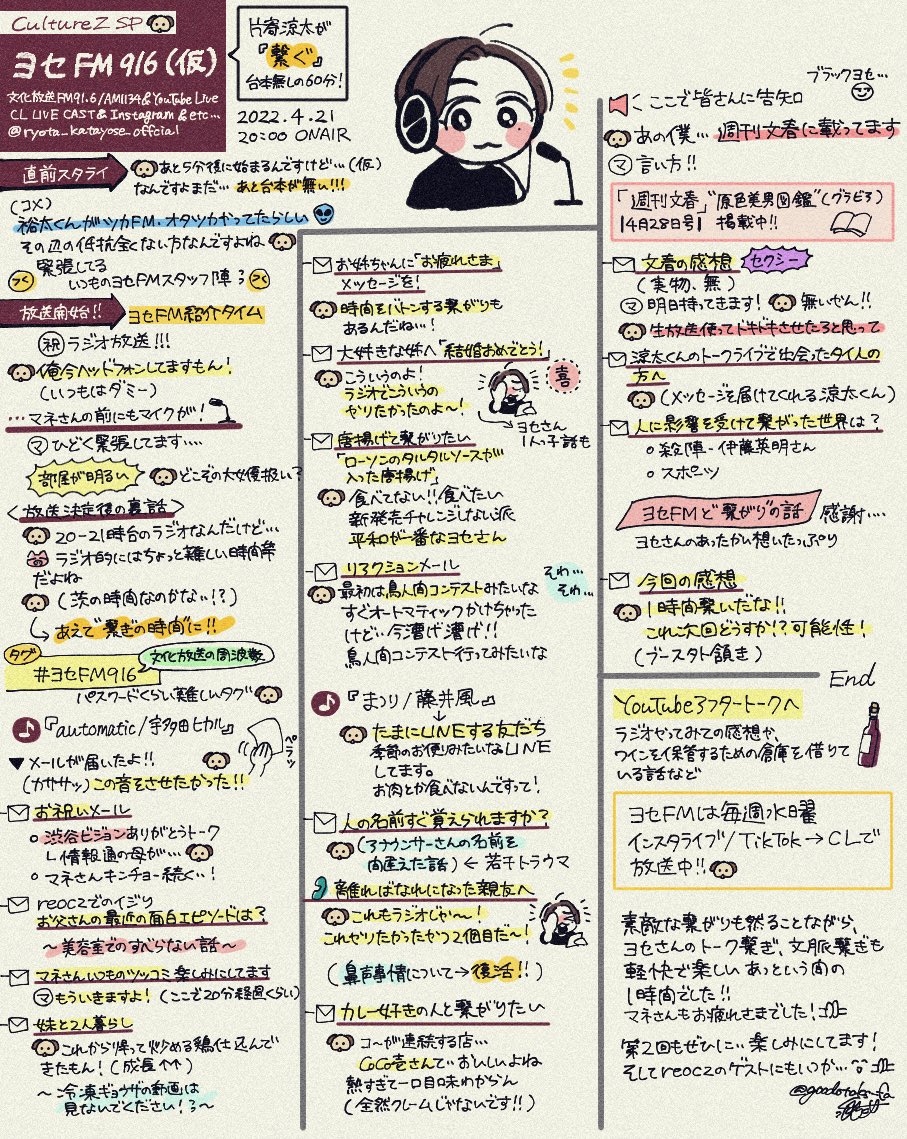 CultureZ SP
ヨセFM916(仮)
文化放送FM91.6/AM1134&YouTube Live
CL LIVE CAST& Instagram & etc…
@ryota_katayose_official
片寄涼太が
『繋ぐ』
台本無しの60分!
2022.4.21
20:00 ONAIR
直前スタライ
あと5分後に始まるんですけど…(仮)
なんですよまだ… あと台本が無い!!!
(コメ)
裕太くんがツカFM・オタツカがってたらしい
その辺の抵抗全くない方なんですよね
緊張してる
いつものヨセFMスタッフ陣
放送開始!! ヨセFM紹介タイム
祝 ラジオ放送!!!
俺今ヘッドフォンしてますもん!
(いつもはダミー)
…マネさんの前にもマイクが!
マ ひどく緊張してます…
部屋が明るい
どこぞの大女優扱い?
<放送決定後の裏話>
20-21時台のラジオなんだけど…
ラジオ的にはちょっと難しい時間帯
だよね
(茨の時間なのかな!?)
あえて"繋ぎの時間"に!!
タグ
#ヨセFM916
文化放送の周波数
パスワードくらい難しいタグ
『automatic/宇多田ヒカル』
ペラッ
▼メールが届いたよ!!
(カサササッ) この音をさせたかった!!
お祝いメール
○ 渋谷ビジョンありがとうトーク
└情報通の母が…
○ マネさんキンチョー続く…!
reoczでのイジリ
お父さんの最近の面白エピソードは?
〜美容室でのすべらない話〜
マネさんいつものツッコミ楽しみにしてます
マ もういきますよ! (ここで20分経過くらい)
妹と2人暮らし
これから帰って炒める鶏仕込んで
きたもん! (成長↑↑)
〜冷凍ギョウザの動画は
見ないでください!〜
お姉ちゃんに「お疲れさま」
メッセージを!
時間をバトンする繋がりも
あるんだね…!
大好きな姉へ「結婚おめでとう!」
こういうのよ!
ラジオでこういうの
やりたかったのよ〜!
喜
ヨセさん
1人っ子話も
唐揚げで繋がりたい
「ローソンのタルタルソースが
入った唐揚げ」
食べてない!!食べたい
新発売チャレンジしない派
平和が一番なヨセさん
リアクションメール
そわ…
そわ…
最初は鳥人間コンテストみたいな
すぐオートマティックかけちゃった
けど…今漕げ漕げ!!
鳥人間コンテスト行ってみたいな
『まつり/藤井風』
たまにLINEする友だち
季節のお便りみたいなLINE
してます。
お肉とか食べないんですって!
人の名前すぐ覚えられますか?
(アナウンサーさんの名前を
間違えた話) ← 若干トラウマ
離ればなれになった親友へ
これもラジオじゃ〜!
これやりたかったやつ2個目だ〜!
(鼻声事情について→復活!!)
カレー好きの人と繋がりたい
コ〜が連続する店…
CoCo壱さんておいしいよね
熱すぎて一口目味わからん
(全然クレームじゃないです!!)
ブラックヨセ…
ここで皆さんに告知
あの僕… 週刊文春に載ってます
マ 言い方!!
「週刊文春」"原色美男図鑑"(グラビア)
4月28日号 掲載中!!
文春の感想 セクシー
(実物、無)
マ 明日持ってきます! 無いやん!!
生放送使ってドキドキさせたろと思って
涼太くんのトークライブで出会ったタイ人の
方へ
(メッセージを届けてくれる涼太くん)
人に影響を受けて繋がった世界は?
○ 殺陣-伊藤英明さん
○ スポーツ
ヨセFMと"繋がり"の話 感謝…
ヨセさんのあったかい想いたっぷり
今回の感想
1時間繋いだな!!
これ次回どうすか!?可能性!
(ブースタト頷き)
End
YouTubeアフタートークへ
ラジオやってみての感想や、
ワインを保管するための倉庫を借りて
いる話など
ヨセFMは毎週水曜
インスタライブ/TikTok→CLで
放送中!!
素敵な繋がりも然ることながら、
ヨセさんのトーク繋ぎ、文脈繋ぎも
軽快で楽しいあっという間の
1時間でした!!
マネさんもお疲れさまでした!
第2回もぜひに…楽しみにしてます!
そしてreoczのゲストにもいつか…